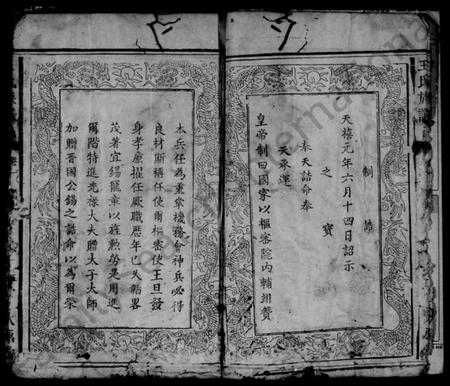 制誥
天禧元年六月十四日詔示
之寶
奉天誥命奉
天承運
皇帝制曰國家以樞密院內輔
本兵任為重掌機務會神兵必得
良材斯稱任使爾樞密使王旦發
身孝廉擢任厥職歷年已久韜畧
茂著宜錫寵章以旌勲勞是用進
爾階特進光祿大夫贈太子太師
加贈晋國公錫之誥命以為爾榮
王氏族譜